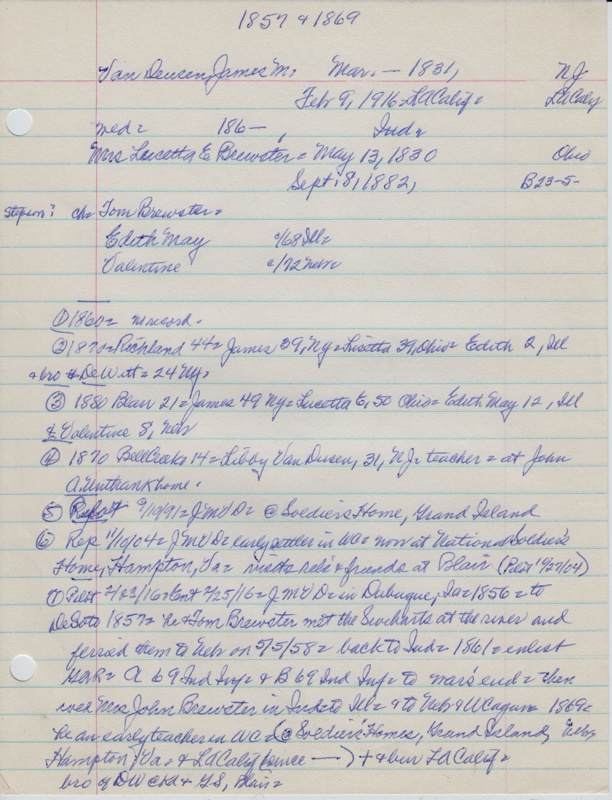 1857 & 1869
Van Deusen, James M: Mar. — 1831, N.J.
Feb 9, 1916 = LA Calif = LA Calif
med = 186—, Ind =
Mrs Lucetta E Brewster = May 13, 1830 Ohio
Sept. 8, 1882, B23-5-
stepson: ch = Tom Brewster =
Edith May c/68 Ill =
Valentine c/72 Nebr
① 1860 = no record.
② 1870 = Richland 44 = James 39, NY = Lucetta 39, Ohio = Edith 2, Ill
& bro DeWitt = 24 NY.
③ 1880 Blair 21 = James 49 NY = Lucetta E, 50 Ohio = Edith May 12, Ill
& Valentine 8, Neb
④ 1870 Bell Creek 14 = Libby Van Dusen, 31, N.J. = teacher = at John
A. Unthank home.
⑤ 9/10/91 = J M V D = @ Soldiers Home, Grand Island
⑥ Rep 11/10/04 = J M V D = early settler in WC = now at National Soldiers
Home, Hampton, Va = visits rels & friends at Blair (Pilot 10/27/04)
⑦ Pilot 2/ /16 = Ent 2/25/16 = J M V D = in Dubuque, Ia = 1856 = to
DeSoto 1857 = he & Tom Brewster met the at the river and
ferried them to Neb on 5/5/58 = back to Ind = 1861 = enlist
GAR = A 69 Ind Inf = & B 69 Ind Inf = to war's end = then
wed Mrs John Brewster in Ind = to Ill = & to Neb & WC again = 1869 =
he an early teacher in WC (@ Soldiers' Homes, Grand Island, Neb,
Hampton, Va = & LA Calif since —) + & bur LA Calif =
bro of DW & , Blair =